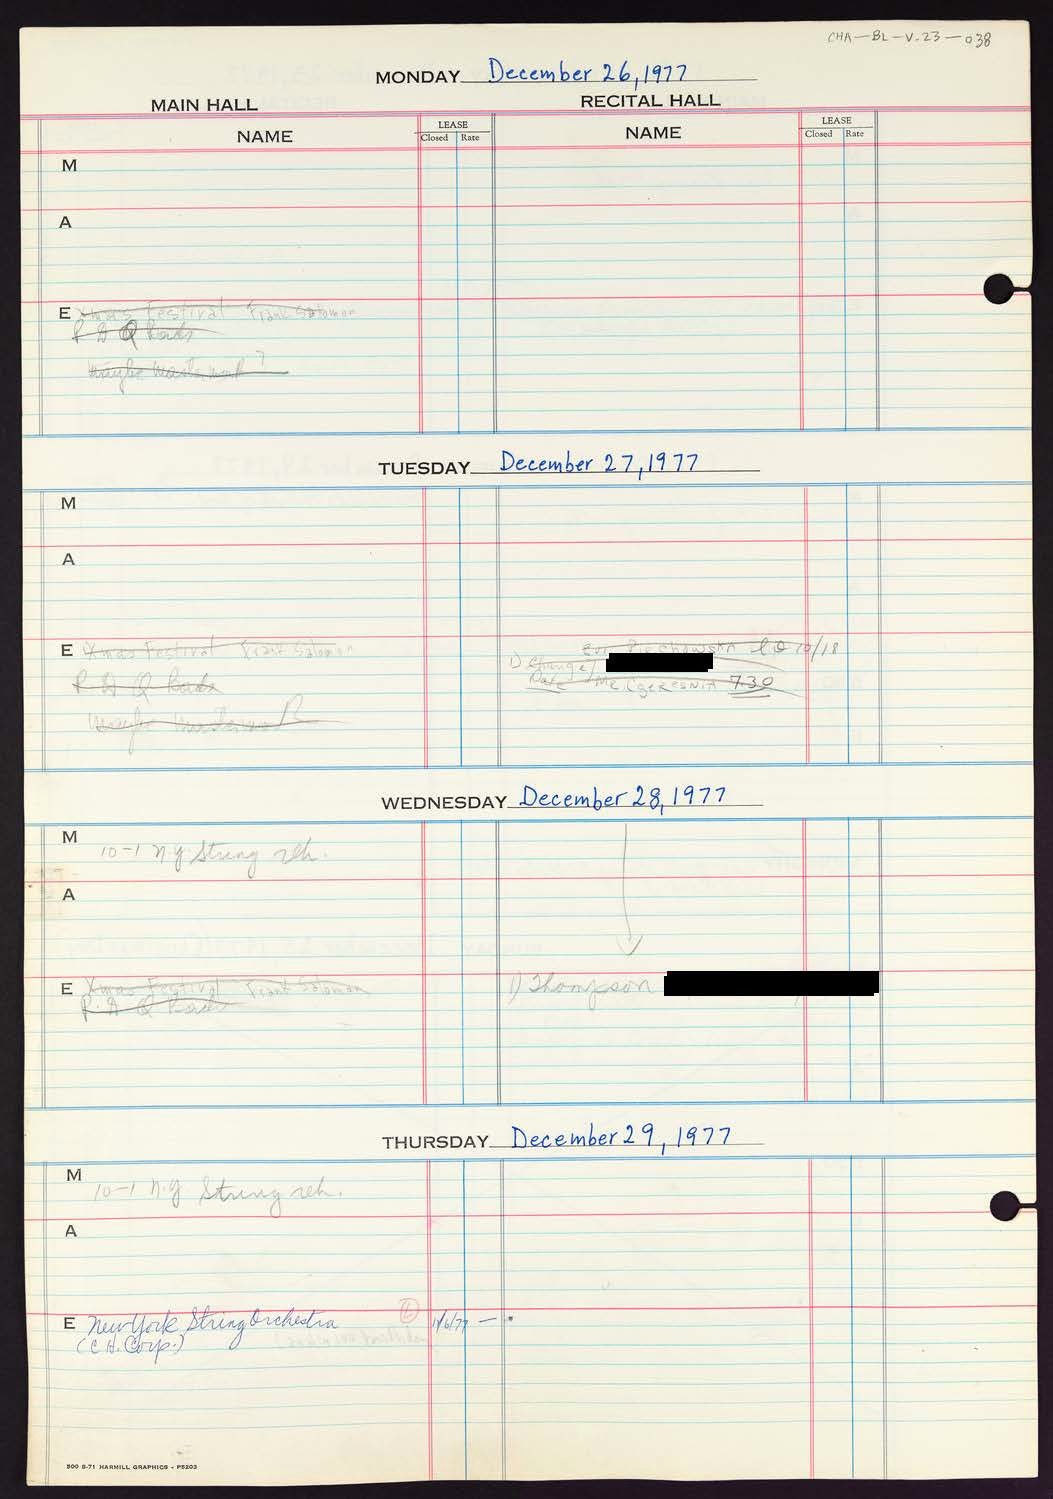 CHA-BL-V.23-038
MONDAY December 26, 1977
MAIN HALL RECITAL HALL
NAME LEASE Closed Rate NAME LEASE Closed Rate
M
A
E Xmas Festival Frank Salomon
maybe
TUESDAY December 27, 1977
M
A
E Xmas Festival Frank Salomon
maybe
10/18
1) Change
Date 7:30
WEDNESDAY December 28, 1977
M 10-1 N.Y. String reh.
A
E Xmas Festival Frank Salomon
1) Thompson
THURSDAY December 29, 1977
M 10-1 N.Y String reh.
A
E New York String Orchestra L 11/6/77 —
(C.H. Corp.)
500 8-71 HARMILL GRAPHICS - P5203